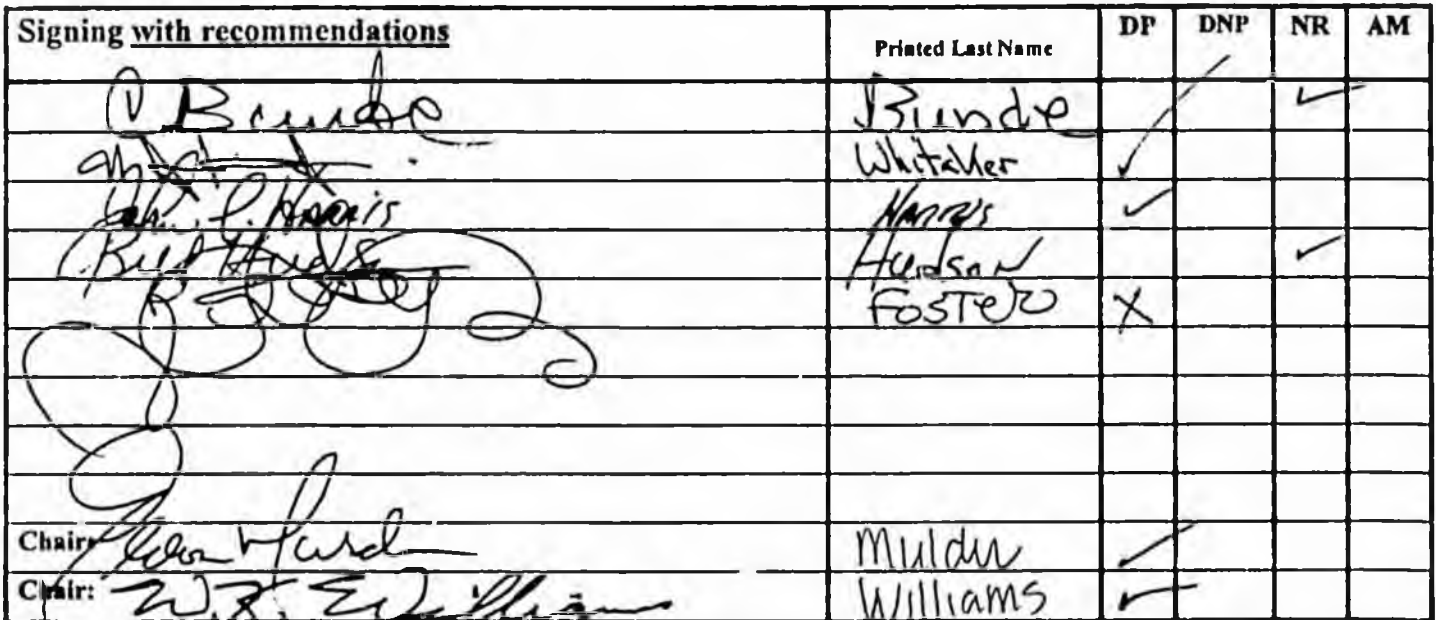 Signing with recommendations Printed Last Name DP DNP NR AM
Bunde Bunde ✓
Whitaker ✓
John L. Harris Harris ✓
Bud Hudson Hudson ✓
Foster X
Chair: Eldon Mulder Mulder ✓
Chair: W.K. Williams Williams ✓